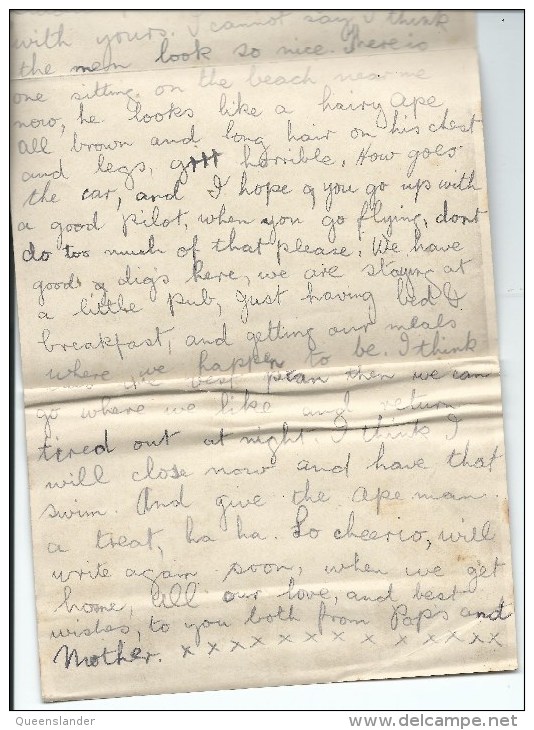 with yours. I cannot say I think
the men look so nice. There is
one sitting on the beach near me
now, he looks like a hairy ape
all brown and long hair on his chest
and legs, horrible. How goes
the car, and I hope you go up with
a good pilot, when you go flying, dont
do too much of that please. We have
good digs here, we are staying at
a little pub, just having bed &
breakfast, and getting our meals
where we happen to be. I think
best plan then we can
go where we like and return
tired out at night. I think I
will close now and have that
swim. And give the ape man.
a treat, ha ha. So cheerio, will
write again soon, when we get
home, all our love, and best
wishes, to you both from Paps and
Mother. x x x x x x x x x x x x x
Queenslander
www.delcampe.net